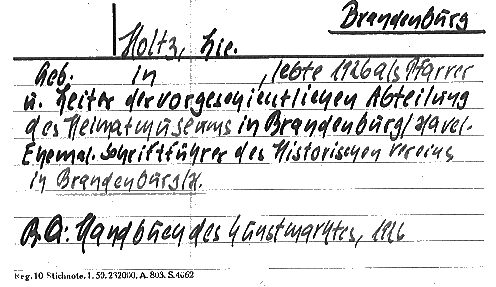 Brandenburg
Holtz, Lic.
Geb. in , lebte 1926 als Pfarrer
u. Leiter der vorgeschichtlichen Abteilung
des Heimatmuseums in Brandenburg/Havel.
Ehemal. Schriftführer des Historischen Vereins
in Brandenburg/H.
B.A: Handbuch des Kunstmarktes, 1926
Reg. 10 Stichnote. 1. 59. 232000. A. 803. S. 4662